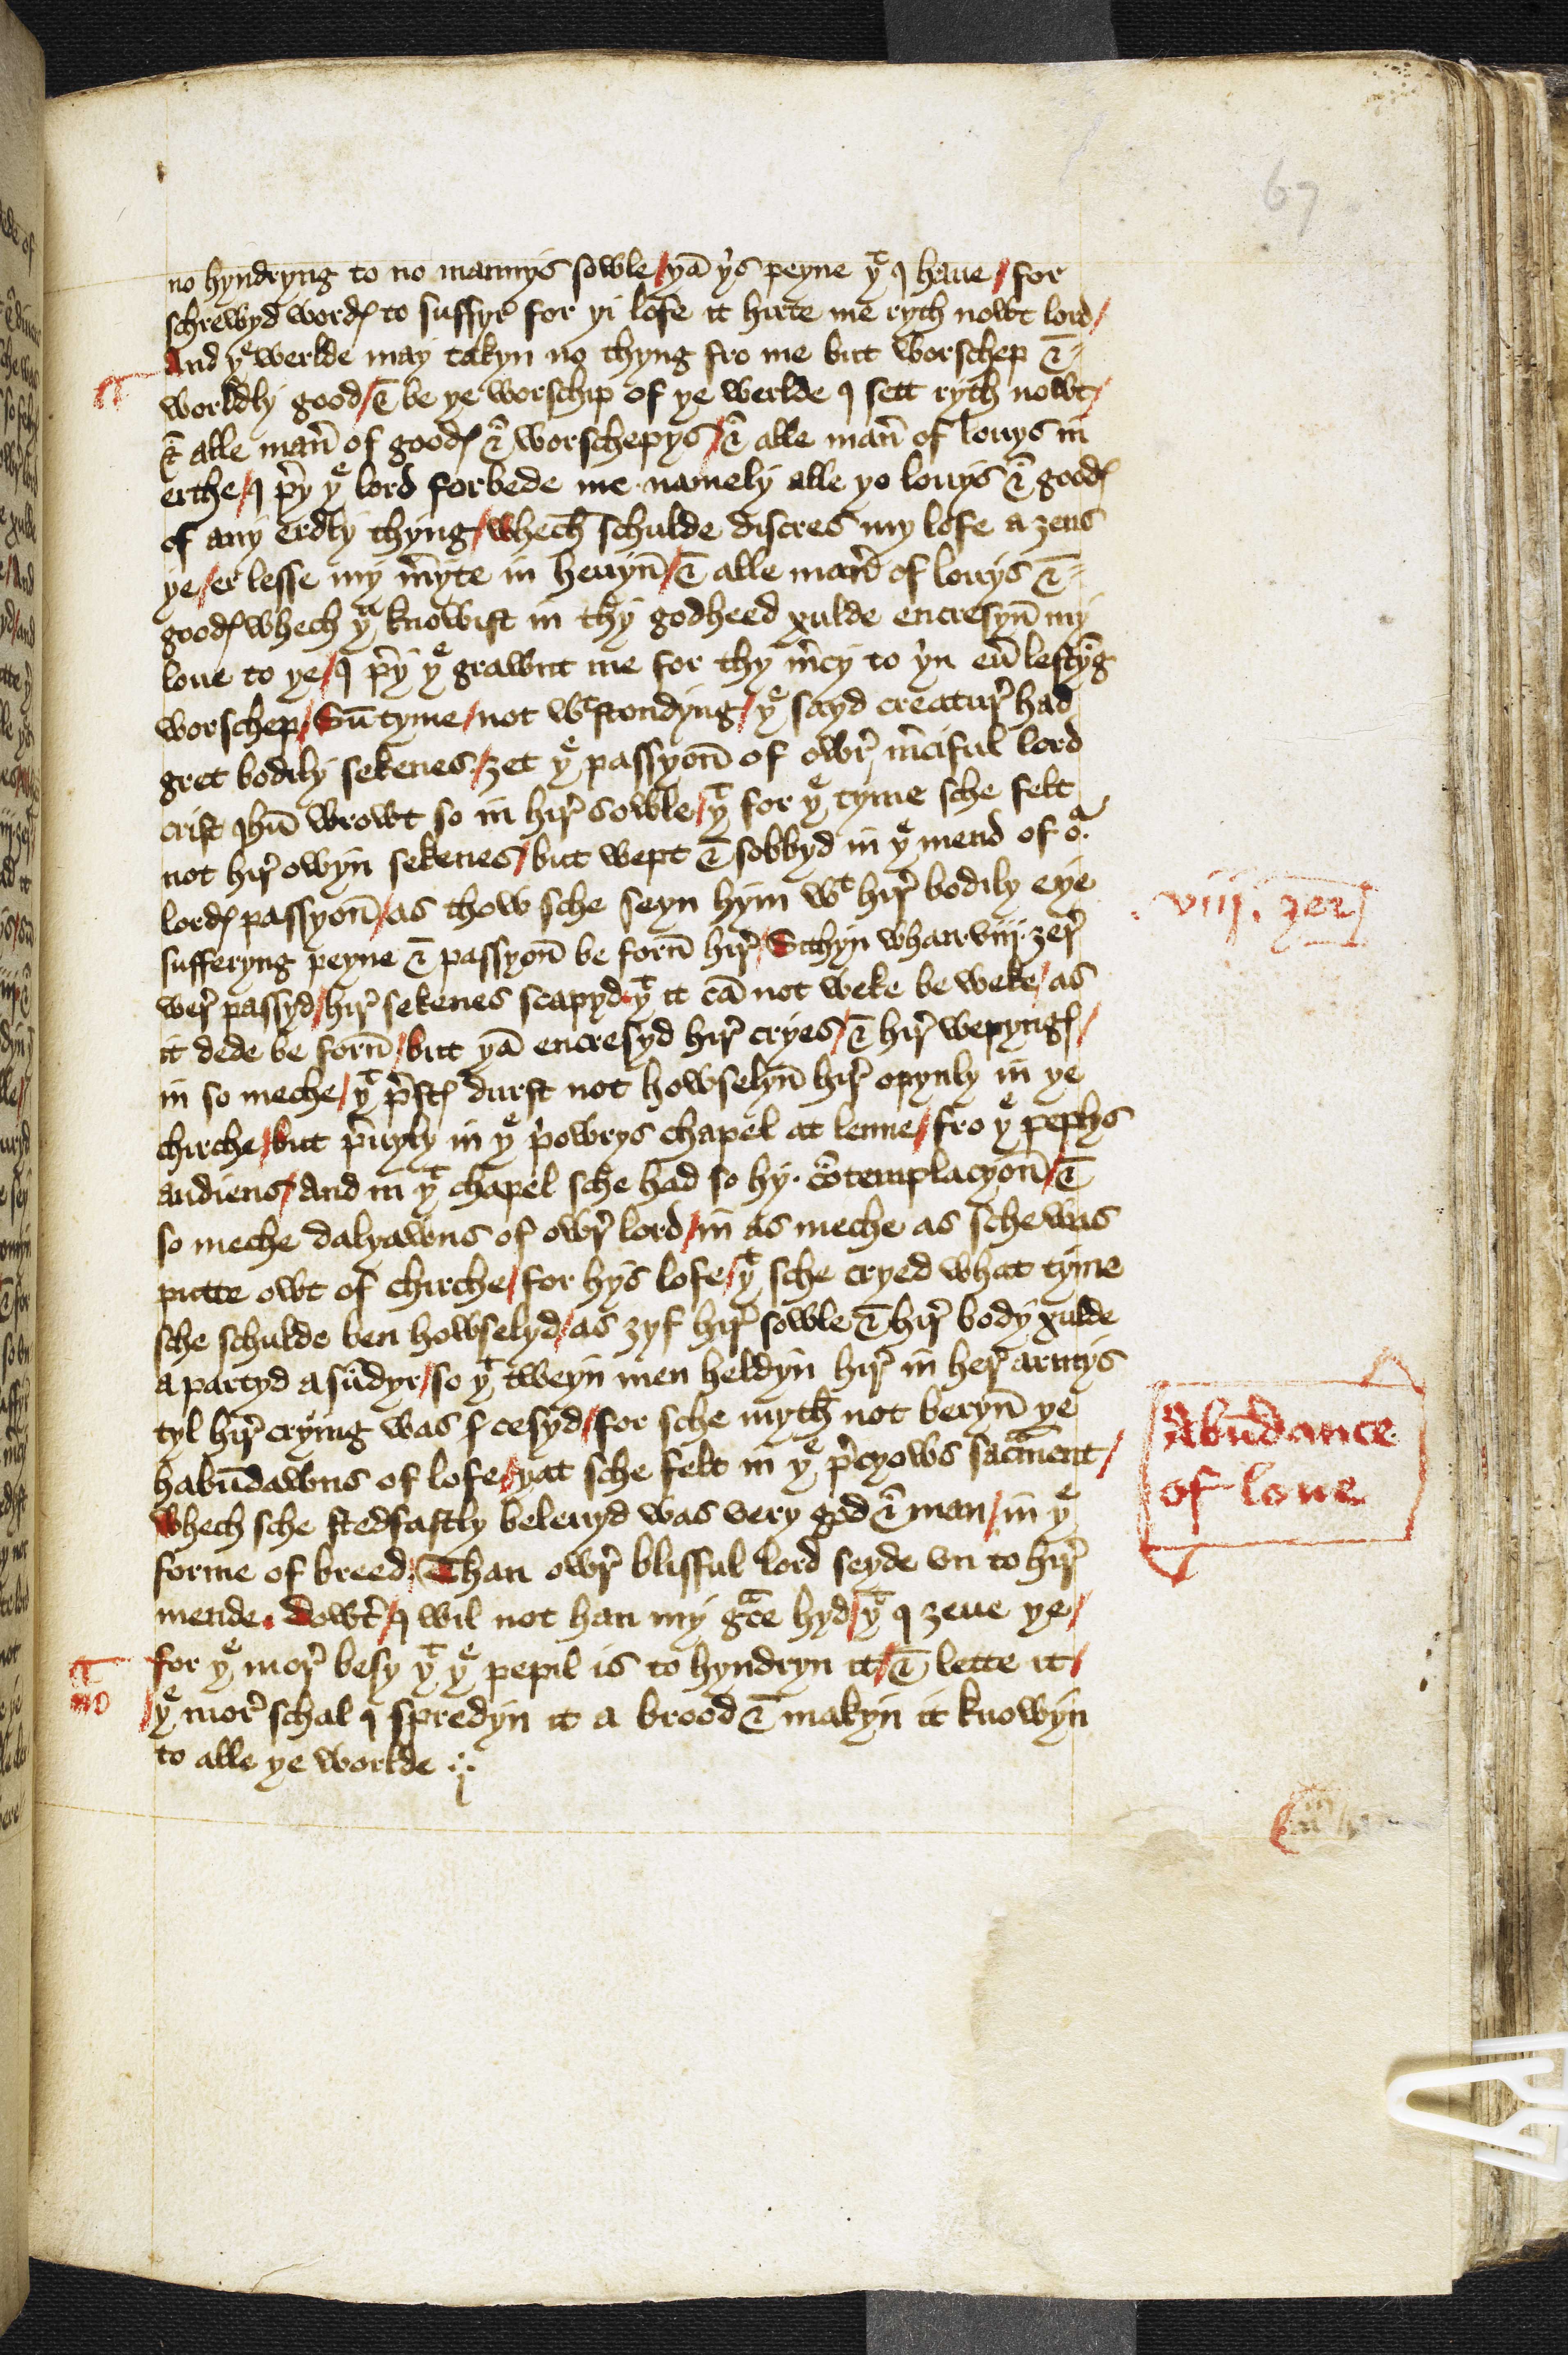 67
no hyndryng to no mannys sowle / yā yis peyne yt I haue / for
schrewyd wordꝭ to suffyr for yi lofe it hirte me ryth nowt lord /
And ye werlde may takyn no thyng fro me but worschep &
worldly good / & be ye worschip of ye werlde I sett ryth nowt /
& alle man̄ of goodꝭ & worschepys / & alle man̄ of louys in
erthe / I p̄y ye lord forbede me namely alle yo louys & goodꝭ
of any erdly thyng / whech schulde discres my lofe a ȝens
ye / er lesse my m̄yte in heuyn̄ / & alle man̄ of louys &
goodꝭ whech yu knowist in thy godheed xulde encresyn̄ my
loue to ye / I p̄y ye grawnt me for thy m̄cy to yin eū lestȳg
worschep / Sūtyme / not wt stondyng / ye sayd creatur̄ had
gret bodily sekenes / ȝet ye passyon̄ of owr̄ m̄ciful lord
crist ihū wrowt so in hir̄ sowle / yt for ye tyme sche felt
not hir̄ owyn sekenes / but wept & sobbyd in ye mend of or
lordꝭ passyon̄ / as thow sche seyn hym wt hir̄ bodily eye
sufferyng peyne & passyon̄ be forn̄ hir̄ / Sithyn whan .viij. ȝer̄
.viij. ȝerꝭ
wer̄ passyd / hir̄ sekenes scapyd yt it cā not weke be weke / as
it dede be forn̄ / but yā encresyd hir̄ cryes / & hir̄ wepyngꝭ /
in so meche / yt p̄stꝭ durst not howselyn̄ hir̄ opynly in ye
chirche / but p̄uyly in ye p̄owrys chapel at lenne / fro ye peplys
audiens / And in yt chapel sche had so hy. cōtemplacyon̄ / &
so meche dalyawns of owr̄ lord / in as meche as sche was
putte owt of chirche / for hys lofe / yt sche cryed what tyme
sche schulde ben howselyd / as ȝyf hir̄ sowle & hir̄ body xulde
a partyd a sūdyr / so yt tweyn men heldyn hir̄ in her̄ armys
tyl hir̄ crying was s cesyd / for sche myth not beryn̄ ye
habūdawns of lofe / yat sche felt in ye p̄cyows sacm̄ent /
Abūdance
of loue
whech sche stedfastly beleuyd was very god & man / in ye
forme of breed / Than owr̄ blisful lord seyde vn to hir̄
mende. Dowt̄ / I wil not han my gc̄e hyd / yt I ȝeue ye /
for ye mor̄ besy yt ye pepil is to hyndryn it / & lette it /
ye mor̄ schal I spredyn it a brood & makyn it knowyn
to alle ye worlde